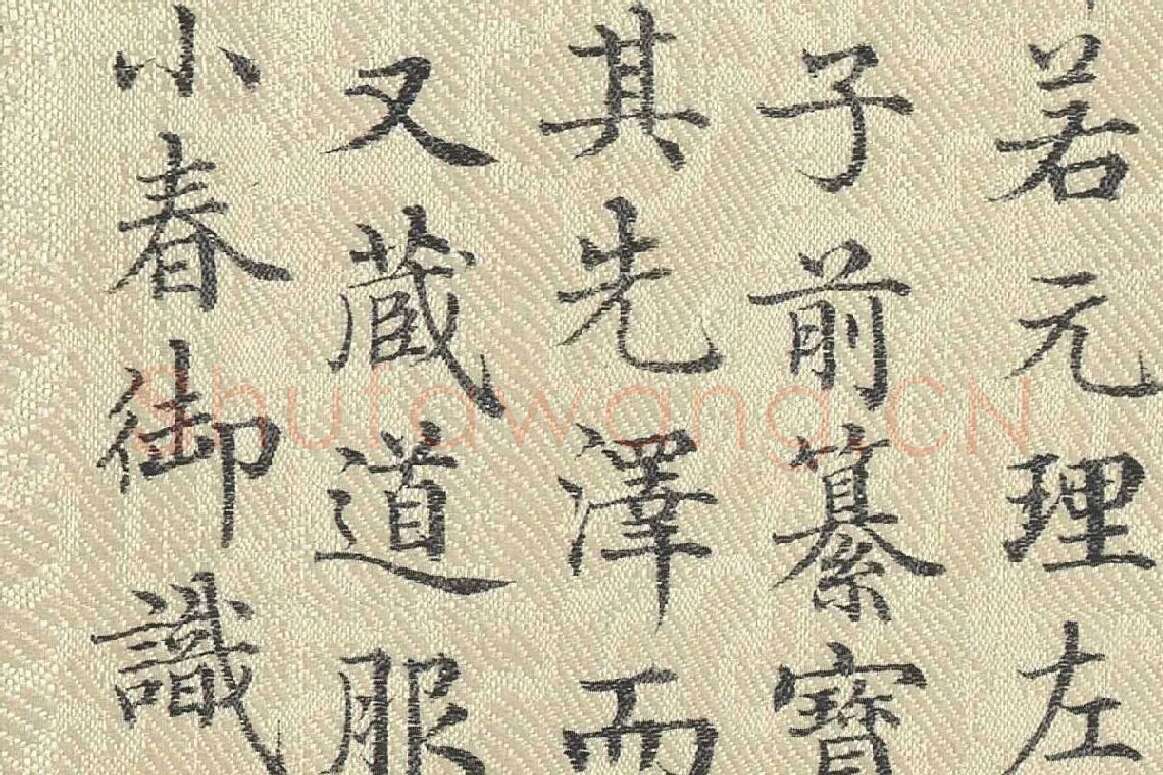 若元理左
子前纂寶
其先澤而
又蔵道服
小春御識
Shutawang.CN